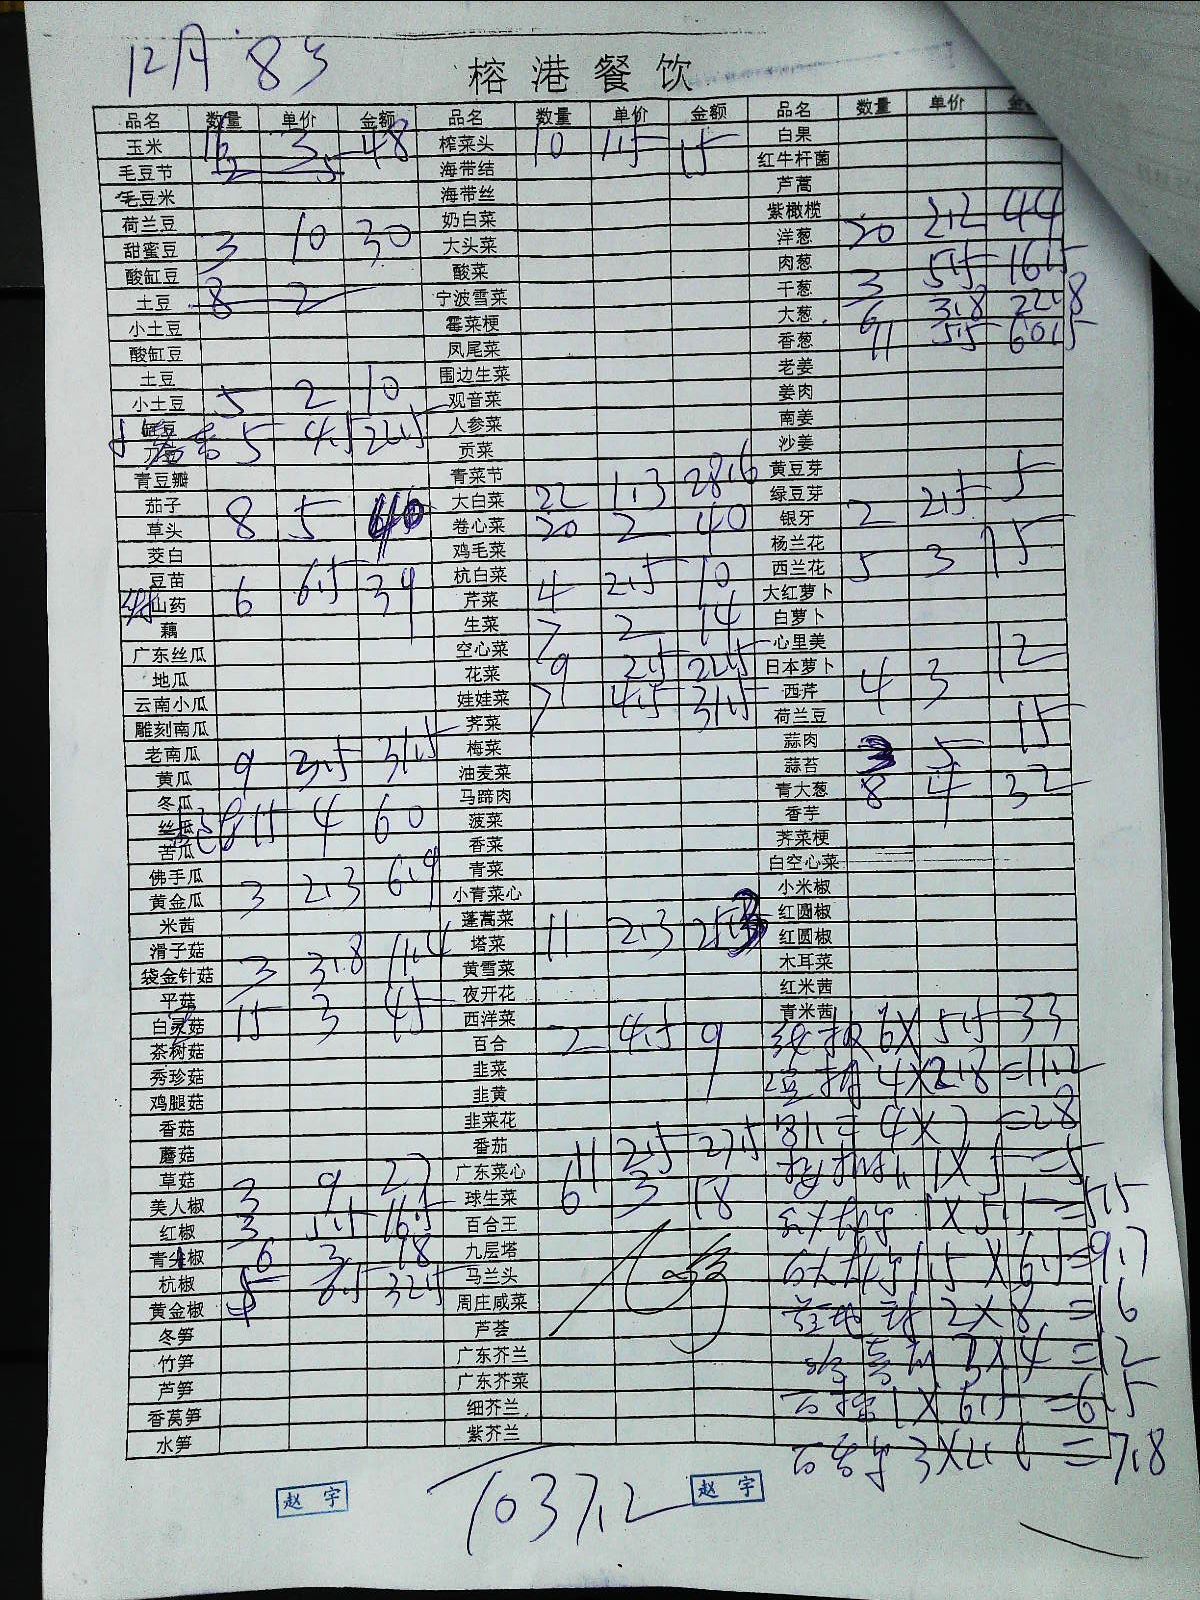 12月 8号
榕港餐饮
品名 数量 单价 金额 品名 数量 单价 金额 品名 数量 单价
玉米 16 3 48 榨菜头 10 1.5 15 白果
毛豆节 海带结 红牛杆菌
毛豆米 海带丝 芦蒿
荷兰豆 奶白菜 紫橄榄
甜蜜豆 3 10 30 大头菜 洋葱 20 2.2 44
酸缸豆 酸菜 肉葱
土豆 8 2 宁波雪菜 干葱 3 5.5 16.5
小土豆 霉菜梗 大葱 6 3.8 22.8
酸缸豆 凤尾菜 香葱 11 5.5 60.5
土豆 围边生菜 老姜
小土豆 5 2 10 观音菜 姜肉
缸豆 人参菜 南姜
刀豆 5 4.5 22.5 贡菜 沙姜
青豆瓣 青菜节 黄豆芽
茄子 大白菜 22 1.3 28.6 绿豆芽
草头 8 5 40 卷心菜 20 2 40 银牙 2 2.5 5
茭白 鸡毛菜 杨兰花
豆苗 杭白菜 西兰花 5 3 15
山药 6 6.5 39 芹菜 4 2.5 10 大红萝卜
藕 生菜 白萝卜
广东丝瓜 空心菜 7 2 14 心里美
地瓜 花菜 9 2.5 22.5 日本萝卜
云南小瓜 娃娃菜 7 4.5 31.5 西芹 4 3 12
雕刻南瓜 荠菜 荷兰豆
老南瓜 梅菜 蒜肉
黄瓜 9 3.5 31.5 油麦菜 蒜苔 3 5 15
冬瓜 马蹄肉 青大葱 8 4 32
丝瓜 15 4 60 菠菜 香芋
苦瓜 香菜 荠菜梗
佛手瓜 青菜 白空心菜
黄金瓜 3 2.3 6.9 小青菜心 小米椒
米茜 蓬蒿菜 红圆椒
滑子菇 塔菜 11 2.3 25.3 红圆椒
袋金针菇 3 3.8 11.4 黄雪菜 木耳菜
平菇 夜开花 红米茜
白灵菇 15 3 45 西洋菜 青米茜
茶树菇 百合 2 4.5 9 6X 5.5 33
秀珍菇 韭菜 4X2.8 =11.2
鸡腿菇 韭黄
香菇 韭菜花 4X7 =28
蘑菇 番茄 11 2.5 27.5 1X5 =5
草菇 广东菜心
美人椒 3 9 27 球生菜 6 3 18 1X5.5 =5.5
红椒 3 5.5 16.5 百合王
青尖椒 6 3 18 九层塔 1.5 X6.5 =9.7
杭椒 5 6.5 32.5 马兰头
黄金椒 周庄咸菜 2X8 =16
冬笋 芦荟
竹笋 广东芥兰 3X4 =12
芦笋 广东芥菜
香莴笋 细芥兰 1X6.5 =6.5
水笋 紫芥兰 3X2.6 =7.8
赵宇 1037.2 赵宇